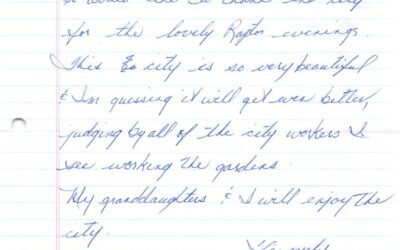 for the lovely Raptor evenings.
This city is so very beautiful
& I'm guessing it will get even better,
judging by all of the city workers I
see working the gardens.
My granddaughters & I will enjoy the
city.